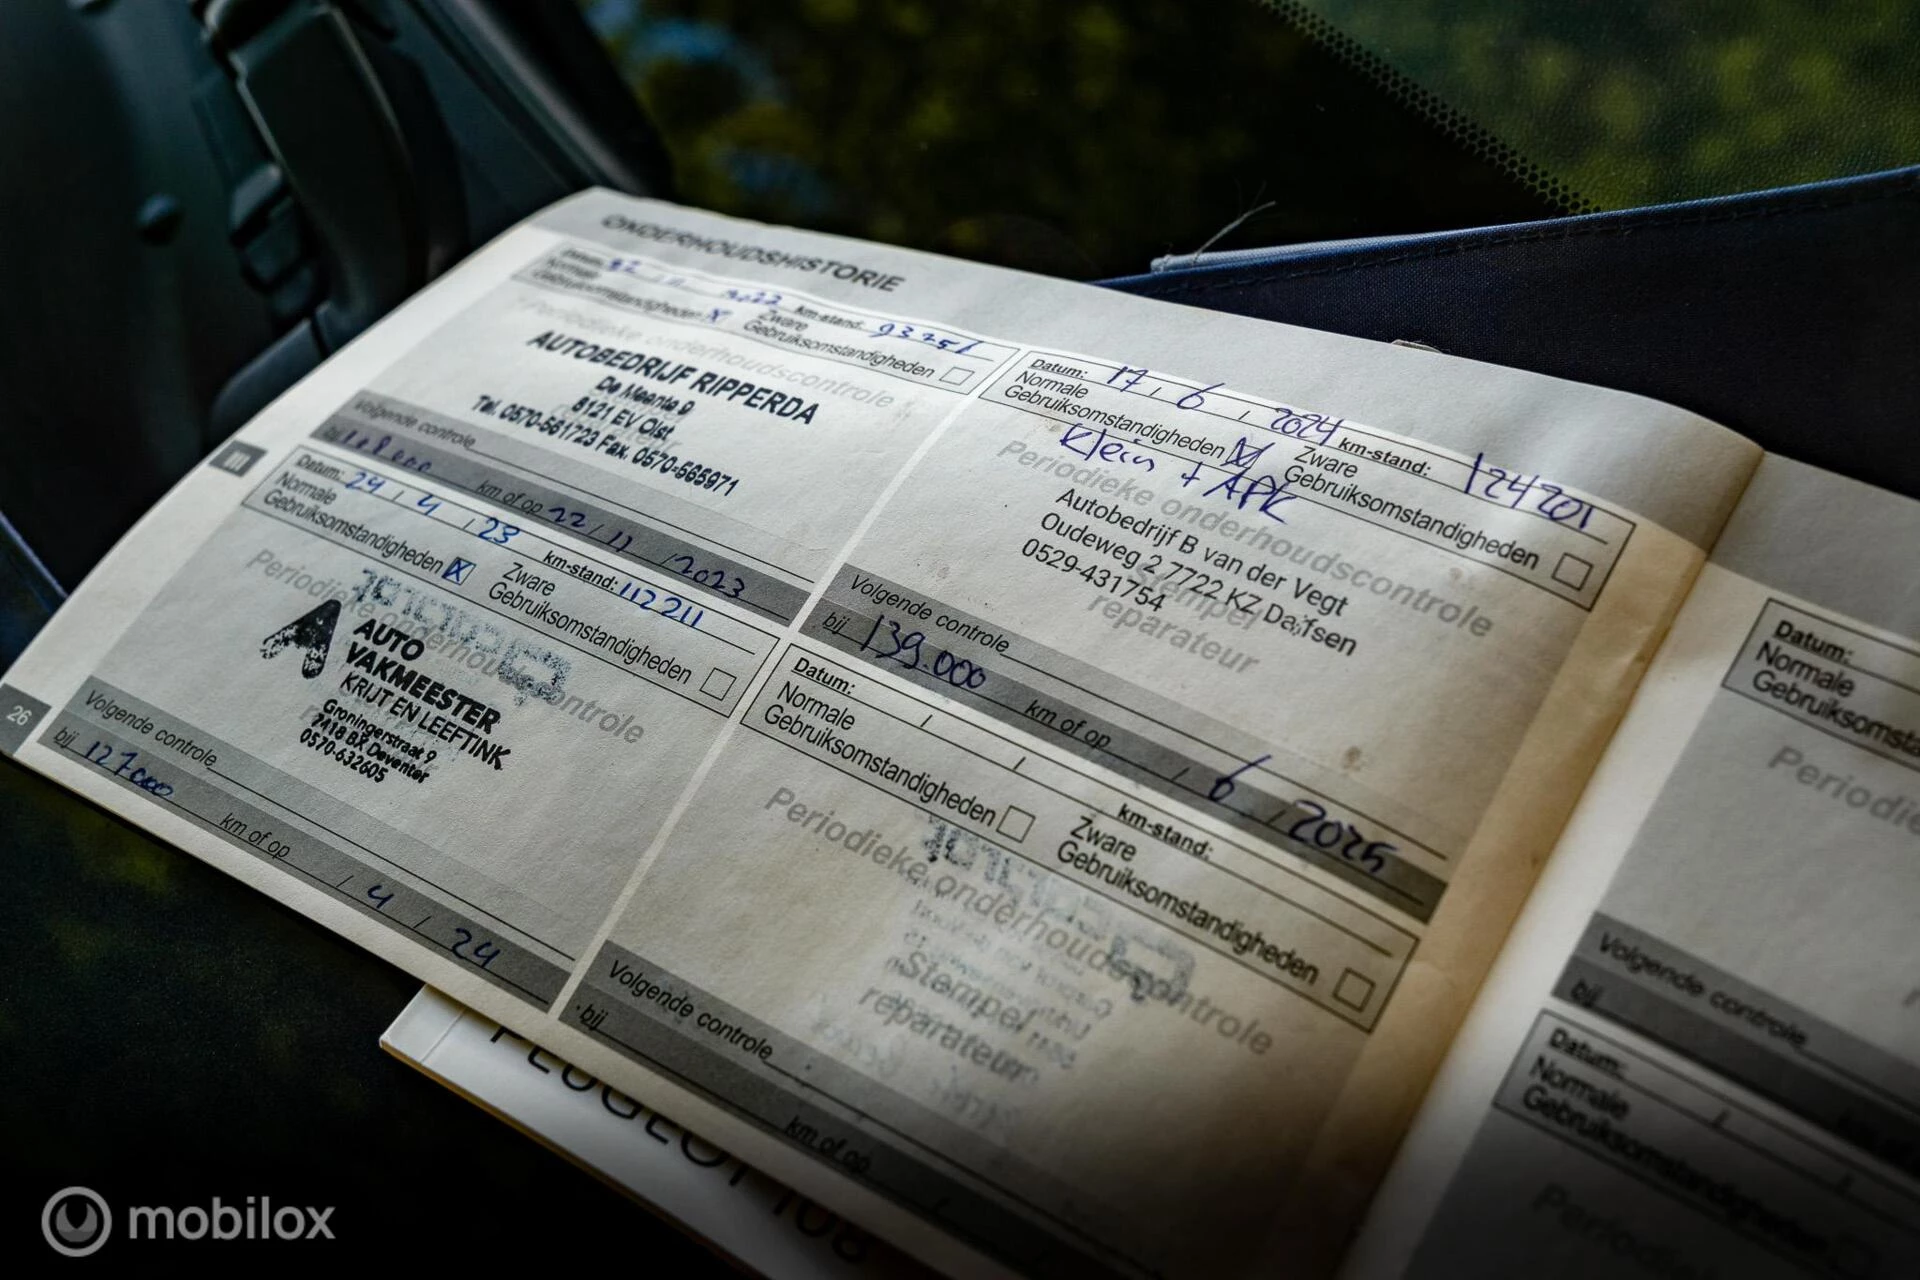 ONDERHOUDSHISTORIE
Datum: 22 11 2022 km-stand: 93251
Normale Gebruiksomstandigheden X Zware Gebruiksomstandigheden
Periodieke onderhoudscontrole
AUTOBEDRIJF RIPPERDA
De Meente 9
8121 EV Olst
Tel. 0570-561723 Fax. 0570-565971
Volgende controle
bij 108000 km of op 22 / 11 / 2023
m
Datum: 24 / 4 / 23 km-stand: 112211
Normale Gebruiksomstandigheden X Zware Gebruiksomstandigheden
Periodieke onderhoudscontrole
AUTO
VAKMEESTER
KRIJT EN LEEFTINK
Groningerstraat 9
7418 BX Deventer
0570-632605
Volgende controle
bij 127000 km of op / 4 / 24
26
Datum: 17 / 6 / 2024 km-stand: 124201
Normale Gebruiksomstandigheden X Zware Gebruiksomstandigheden
Klein + APK
Periodieke onderhoudscontrole
Autobedrijf B van der Vegt
Oudeweg 2 7722 KZ Dalfsen
0529-431754
Stempel
reparateur
Volgende controle
bij 139.000 km of op / 6 / 2025
Datum: / / km-stand:
Normale Gebruiksomstandigheden Zware Gebruiksomstandigheden
Periodieke onderhoudscontrole
Stempel
reparateur
Volgende controle
bij km of op /
Datum:
Normale
Periodie
Volgende controle
bij
Datum: /
Normale
PEUGEOT 108
mobilox